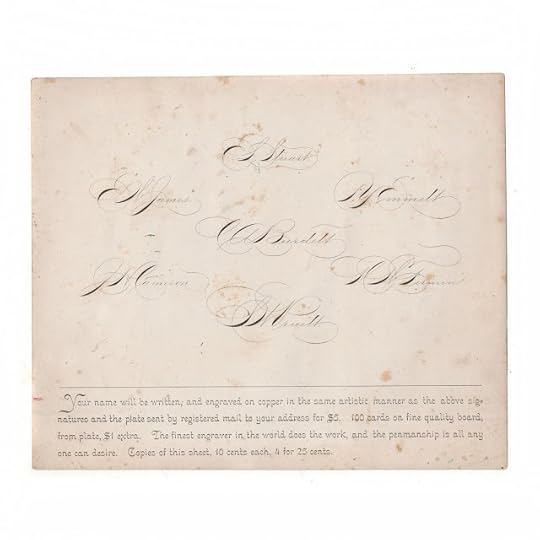 E. Stuart
E. W. James
A. Y. Emmett
C. A. Burdett
J. W. Cameron
B. H. Pruett
Your name will be written, and engraved on copper in the same artistic manner as the above sig-
natures and the plate sent by registered mail to your address for $5. 100 cards on fine quality board,
from plate, $1 extra. The finest engraver in the world does the work, and the penmanship is all any
one can desire. Copies of this sheet, 10 cents each, 4 for 25 cents.